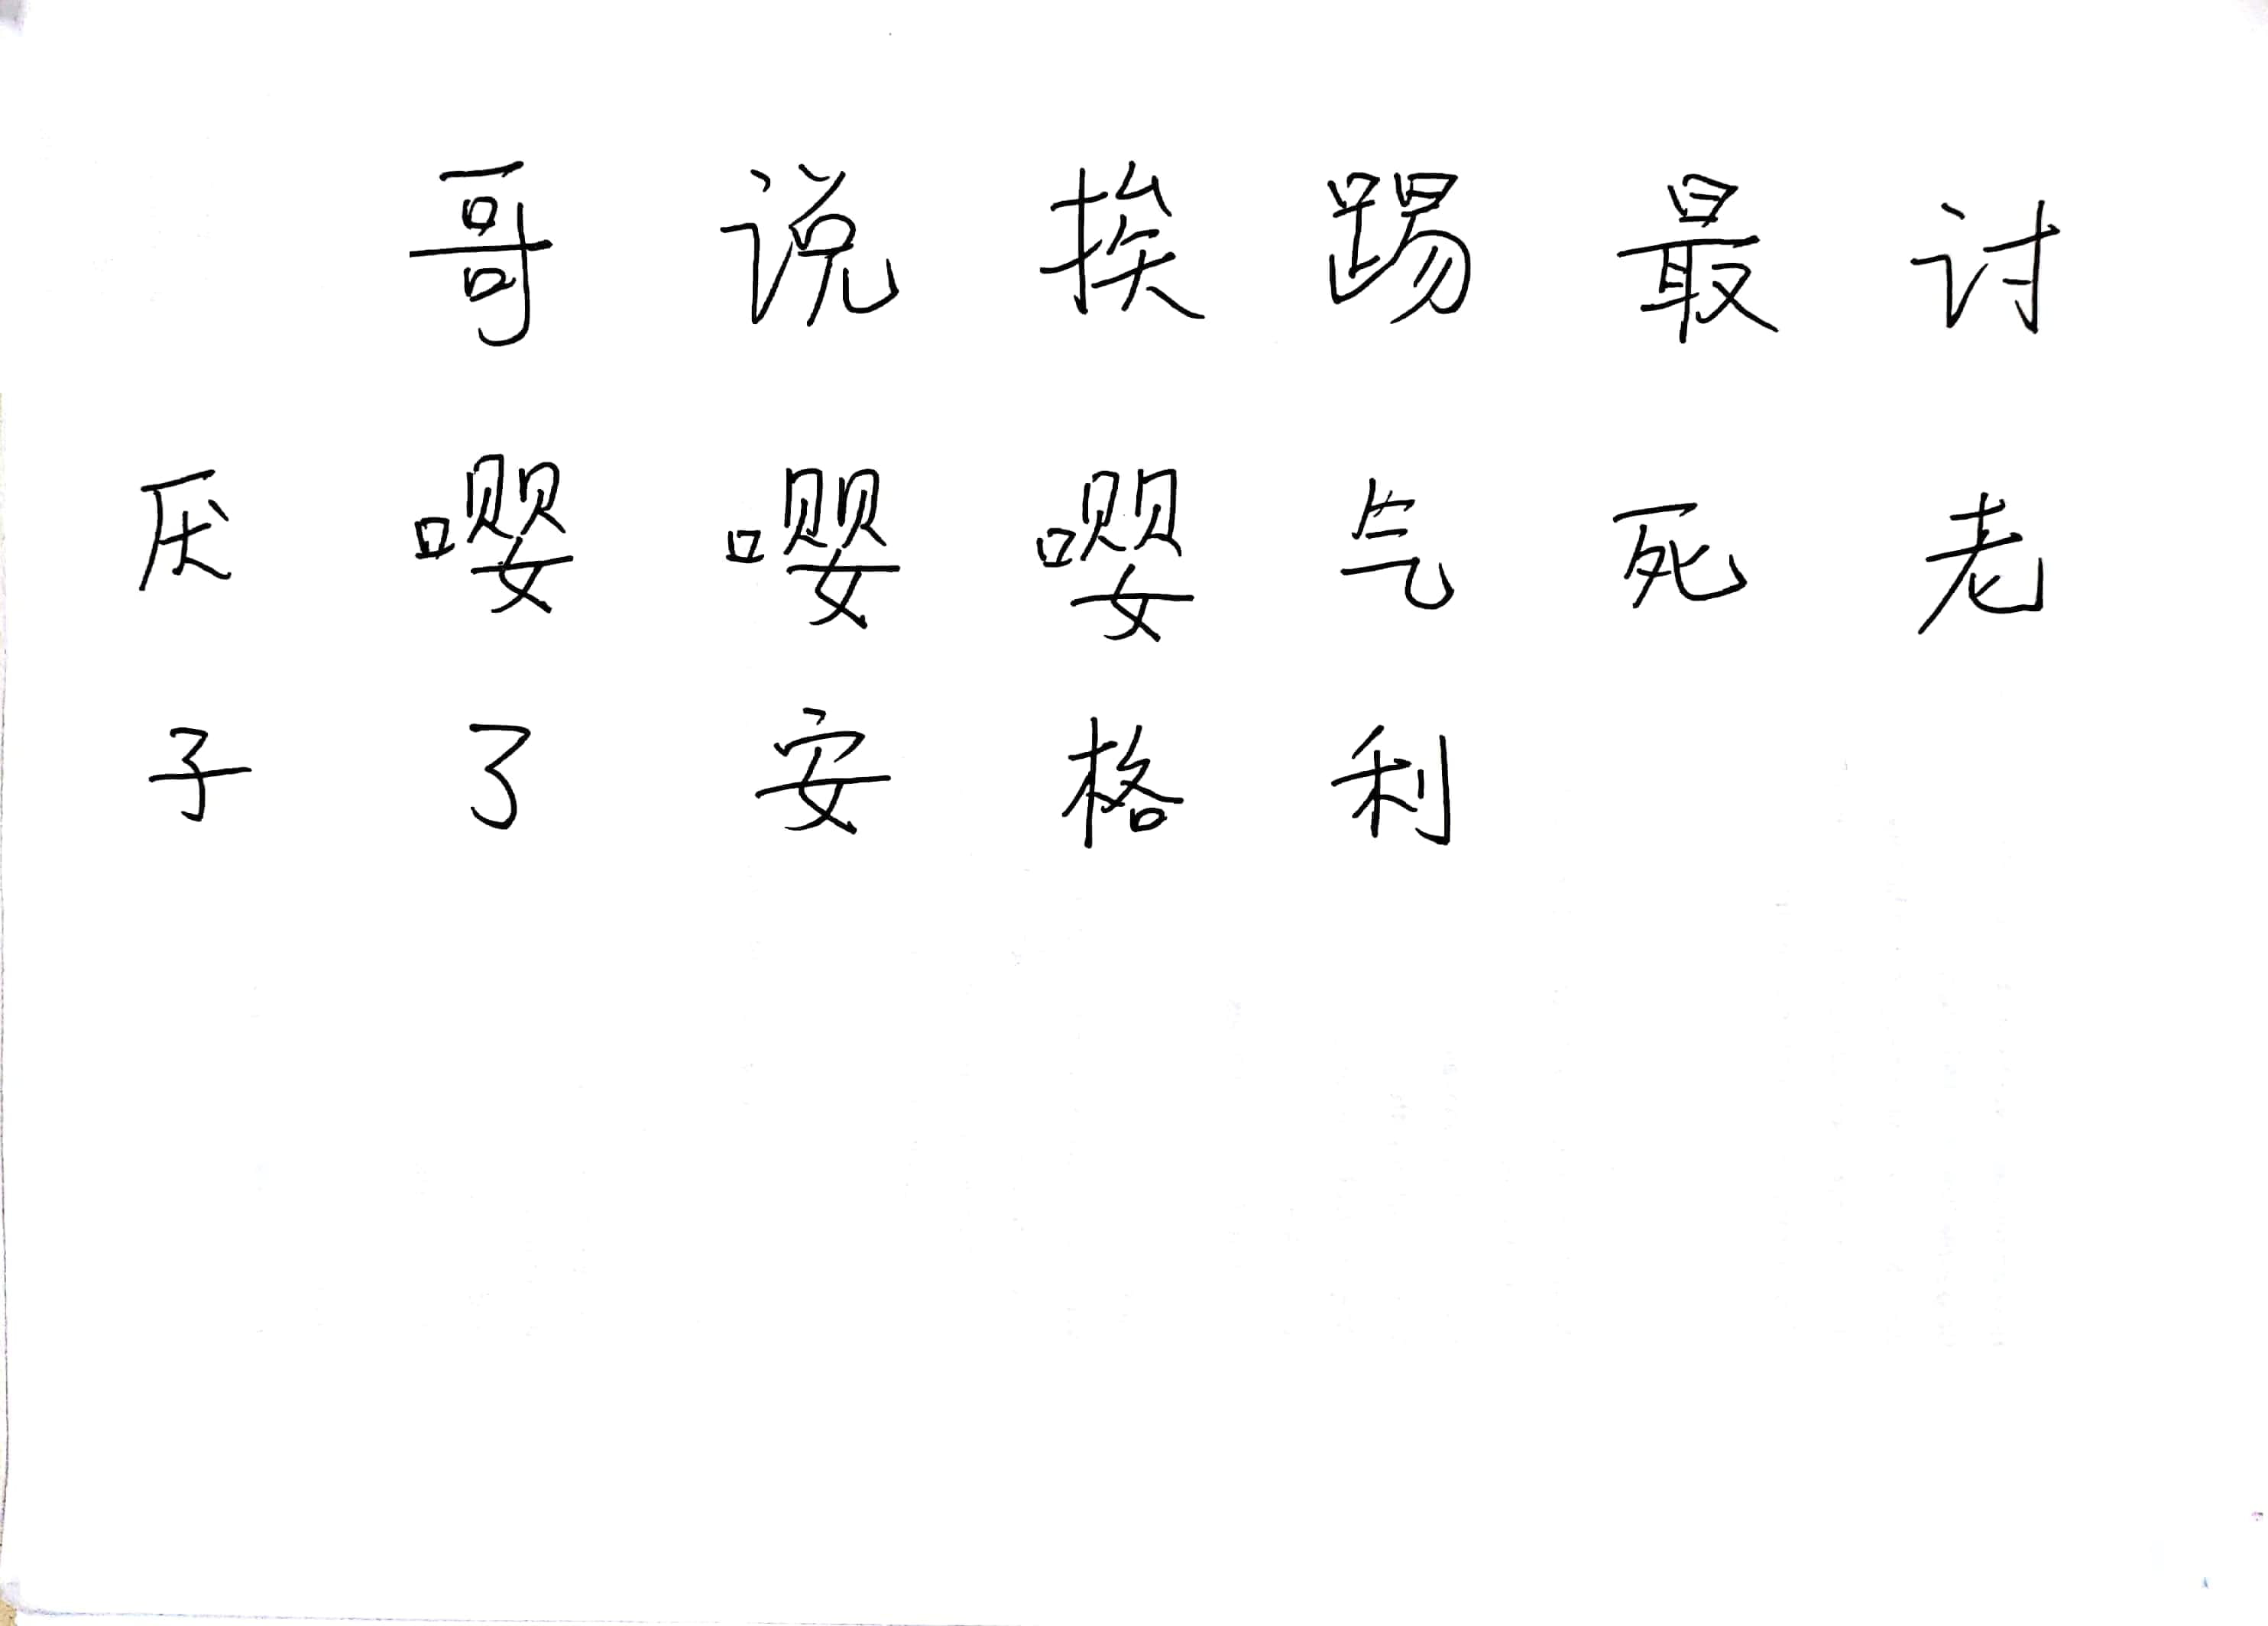 哥说挨踢最讨
厌嘤嘤嘤气死老
子了安格利